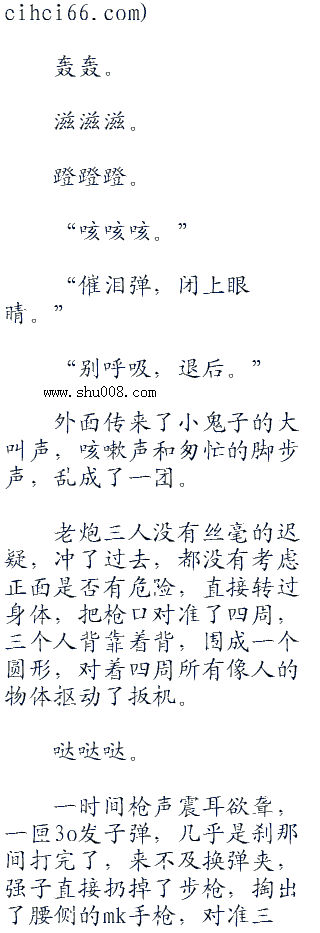 cihci66.com)
轰轰。
滋滋滋。
蹬蹬蹬。
“咳咳咳。”
“催泪弹，闭上眼
睛。”
“别呼吸，退后。”
www.shu008.com
外面传来了小鬼子的大
叫声，咳嗽声和匆忙的脚步
声，乱成了一团。
老炮三人没有丝毫的迟
疑，冲了过去，都没有考虑
正面是否有危险，直接转过
身体，把枪口对准了四周，
三个人背靠着背，围成一个
圆形，对着四周所有像人的
物体抠动了扳机。
哒哒哒。
一时间枪声震耳欲聋，
一匣3o发子弹，几乎是刹那
间打完了，来不及换弹夹，
强子直接扔掉了步枪，掏出
了腰侧的mk手枪，对准三